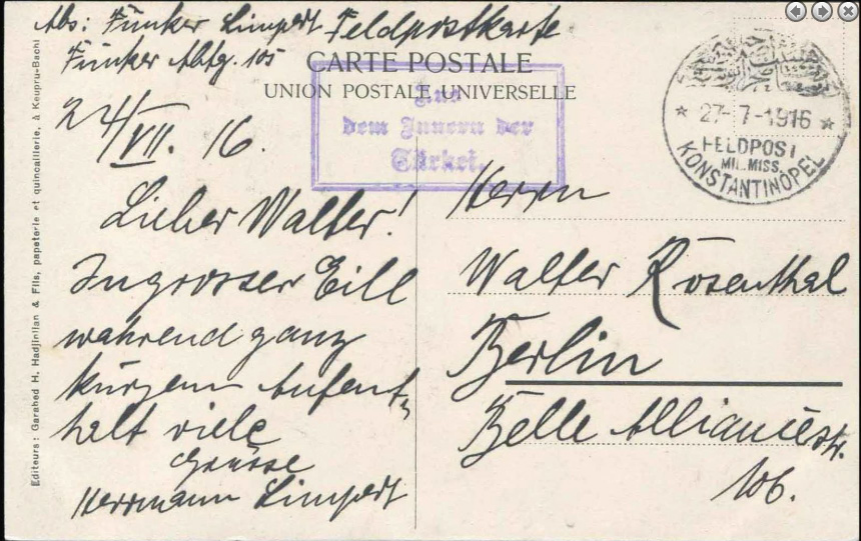 Abs: Funker Limpert Feldpostkarte
Funker Abtg. 105
CARTE POSTALE
UNION POSTALE UNIVERSELLE
Aus
dem Innern der
Türkei.
27-7-1916
FELDPOST
MIL. MISS.
KONSTANTINOPEL
24/VII. 16.
Lieber Walter!
In grosser Eile
während ganz
kurzem Aufent-
halt viele
Grüsse
Herrmann Limpert
Herrn
Walter Rosenthal
Berlin
Belle Alliancestr.
106.
Editeurs: Garabed H. Hadjinlian & Fils, papeterie et quincaillerie, à Keupru-Bachi